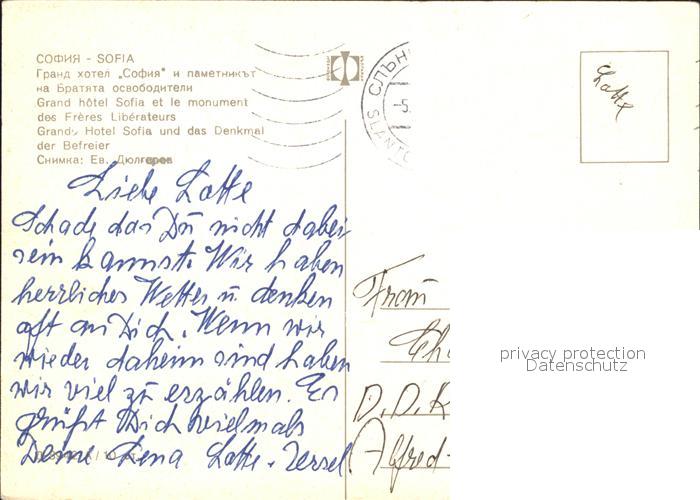 СОФИЯ - SOFIA
Гранд хотел „София" и паметникът
на Братята освободители
Grand hôtel Sofia et le monument
des Frères Libérateurs
Grand Hotel Sofia und das Denkmal
der Befreier
Снимка: Ев. Дюлгеров
СЛЪН
-5.
SLANT
Lotte
Liebe Lotte
Schade das Du nicht dabei
sein kannst. Wir haben
herrliches Wetter u denken
oft an Dich. Wenn wir
wieder daheim sind haben
wir viel zu erzählen. Es
grüßt Dich vielmals
Deine Lena Lotte.
Frau
D.D.R
Alfred-
privacy protection
Datenschutz